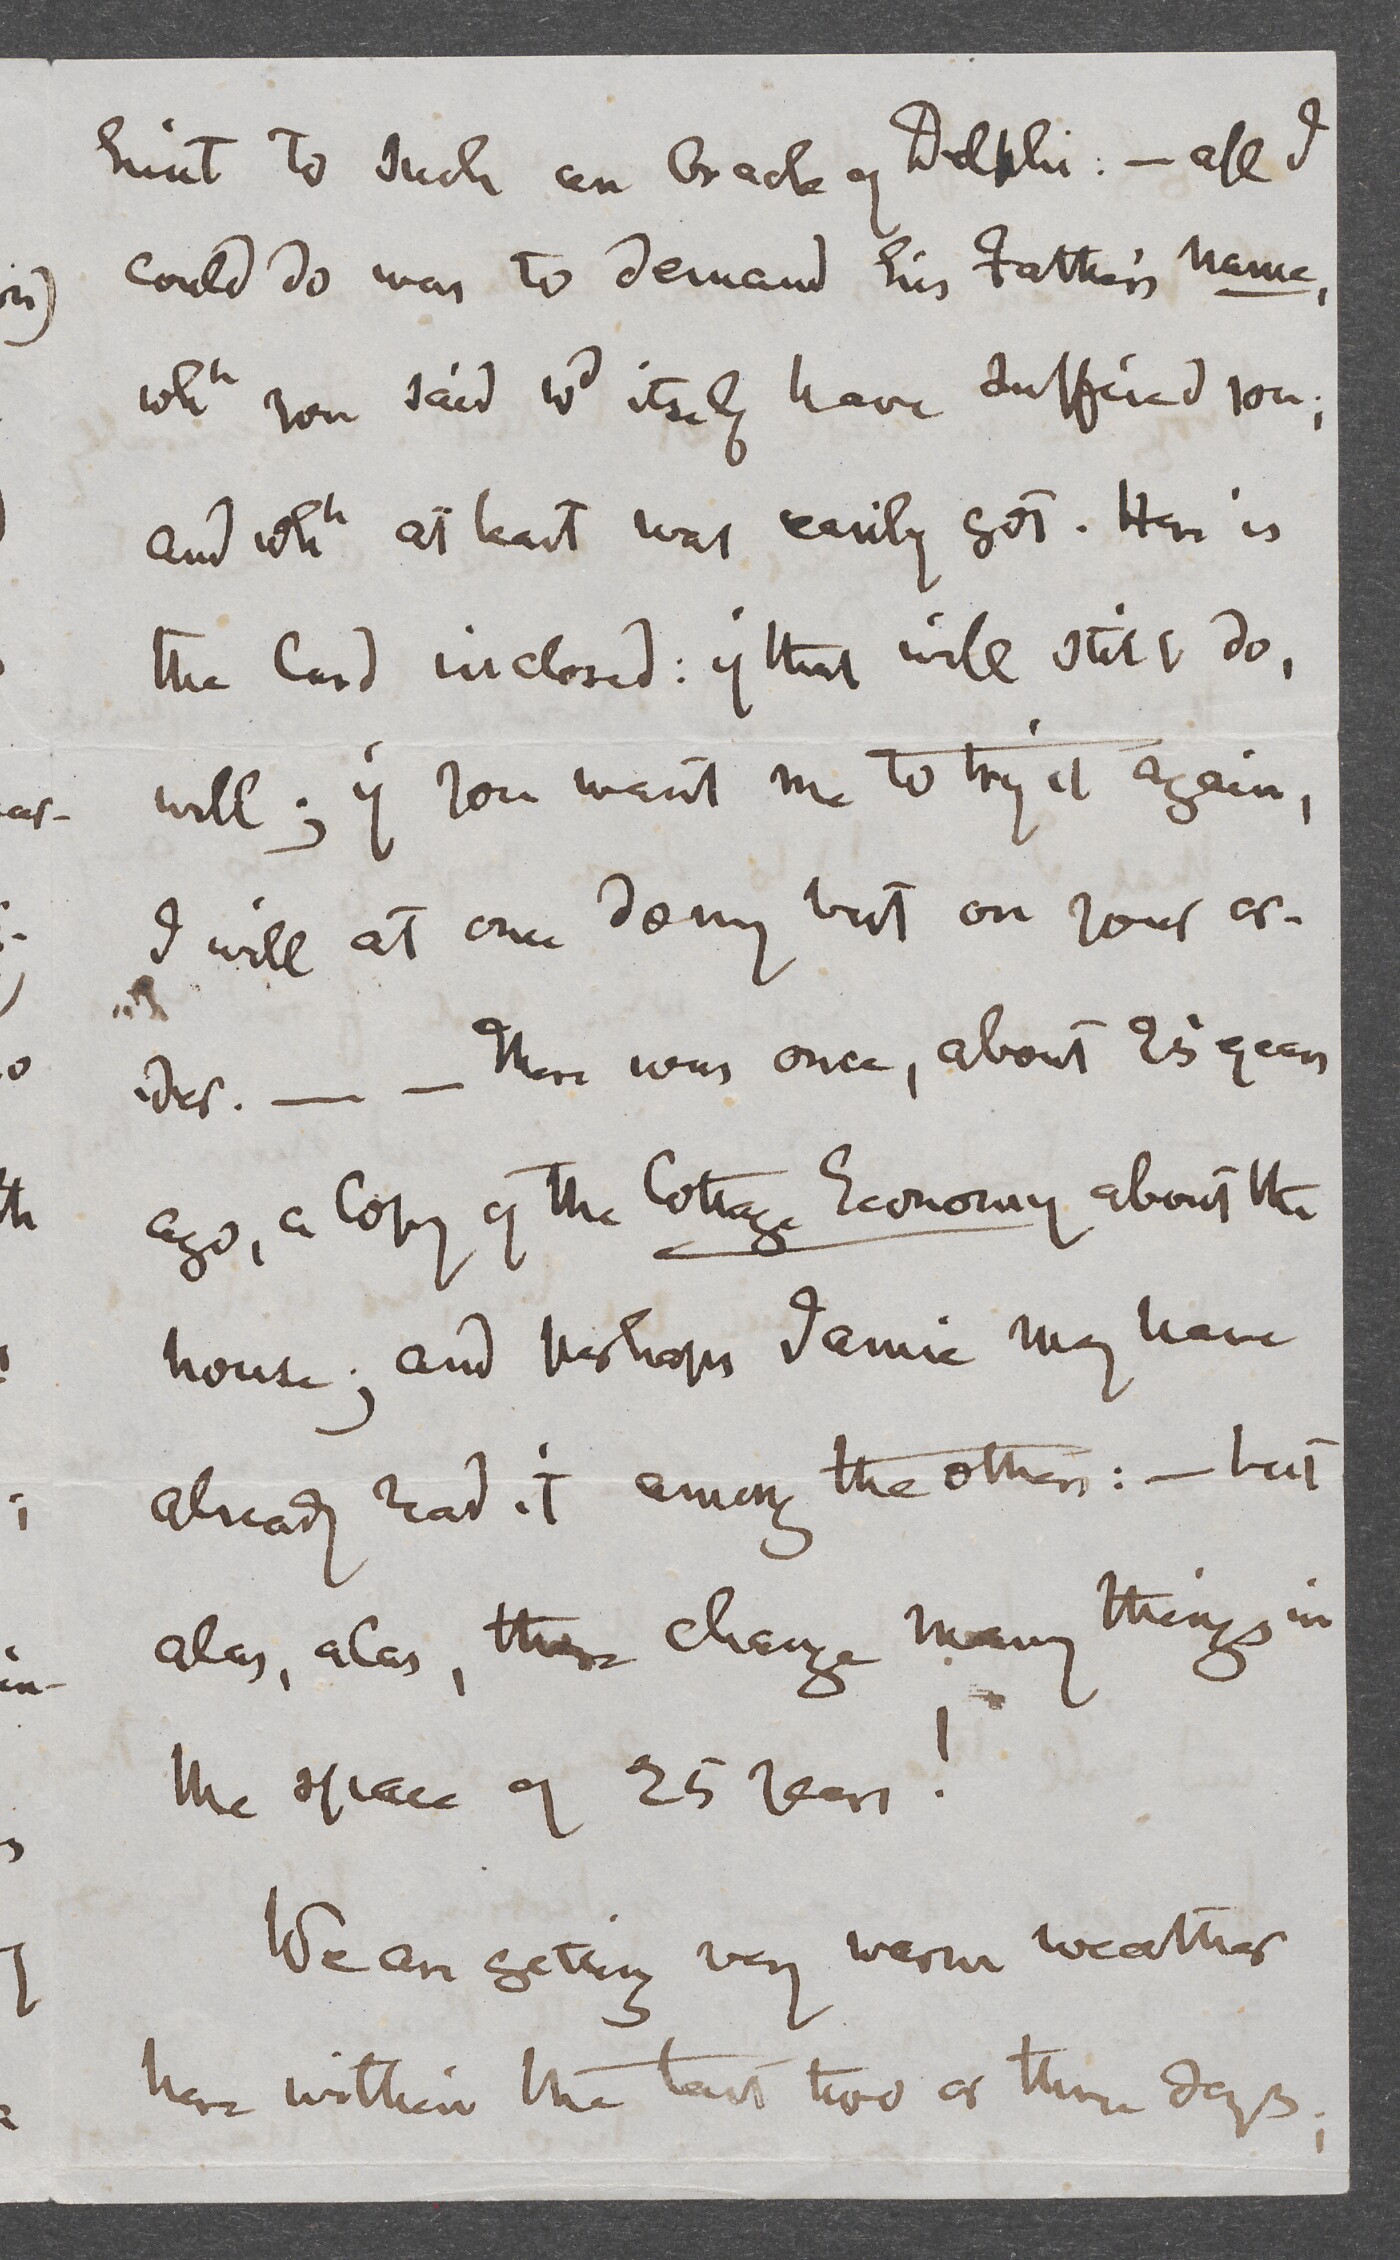 hint to such an Oracle of Delphi: — all I
could do was to demand his Father's name,
whh you said wd itself have sufficed you;
and whh at least was easily got. Here is
the Card inclosed: if that will still do,
well; if you want me to try it again,
I will at once do my best on your or-
der. — — There was once, about 25 years
ago, a Copy of the Cottage Economy about the
house; and perhaps Jamie may have
already read it among the others: — but
alas, alas, there change many things in
the space of 25 years!
We are getting very warm weather
here within the last two or three days;